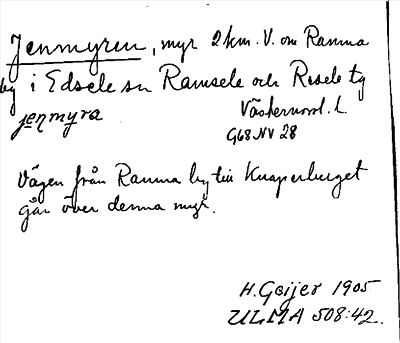 Jenmyren, myr 2 km. V. om Ramma
by i Edsele sn Ramsele och Resele tg
jenmyra Västernorrl. l
G68 NV 28
Vägen från Ramma by till Knaperberget
går över denna myr.
H. Geijer 1905
ULMA 508:42.